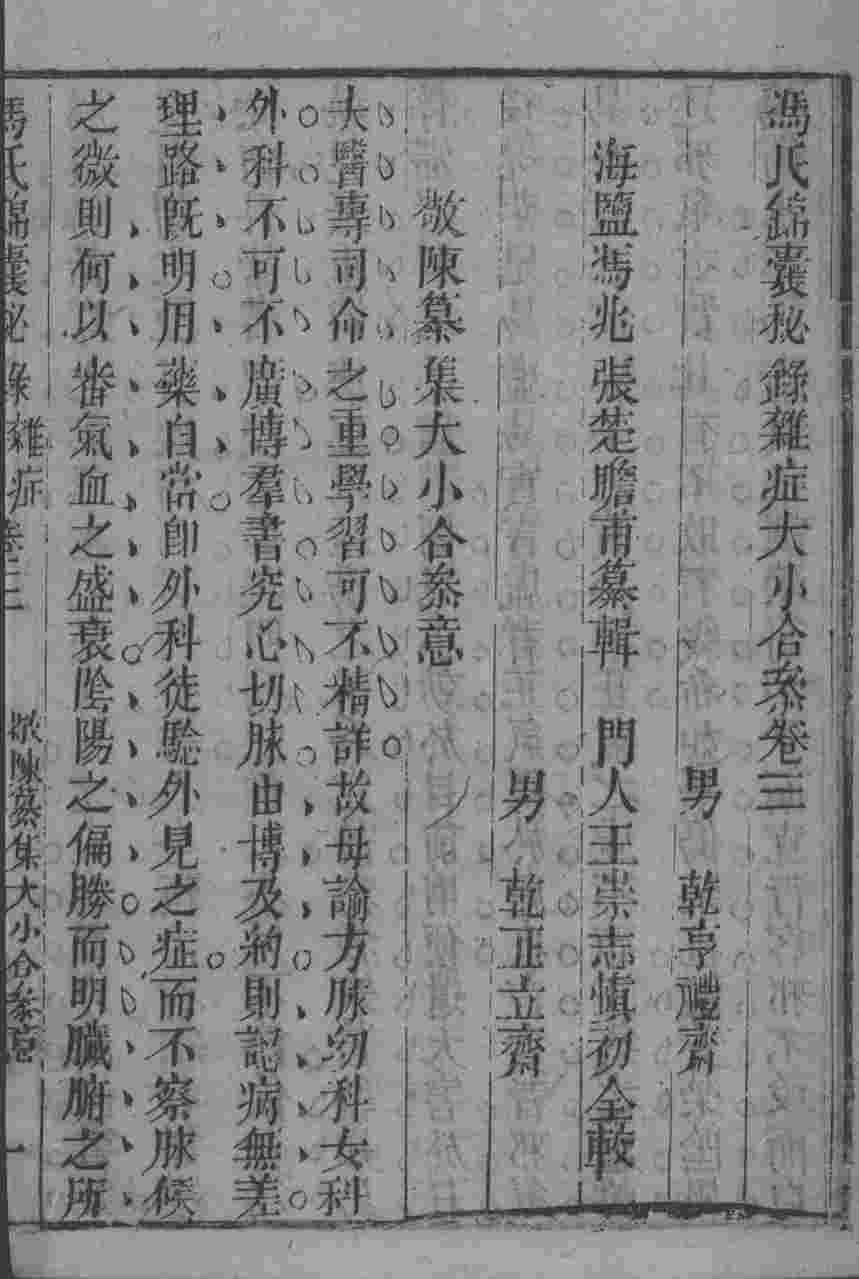 馮氏錦囊秘錄雜症大小合叅卷三
男　乾亨禮齋
海鹽馮兆張楚瞻甫纂輯　門人王崇志慎初仝較
男　乾正立齋
敬陳纂集大小合叅意
夫醫專司命之重學習可不精詳故毋論方脉幼科女科
外科不可不廣博羣書究心切脉由博及約則認病無差
理路旣明用藥自當卽外科徒騐外見之症而不察脉候
之微則何以審氣血之盛衰陰陽之偏勝而明臟腑之所
馮氏錦囊秘錄雜症卷三　敬陳纂集大小合叅意　一